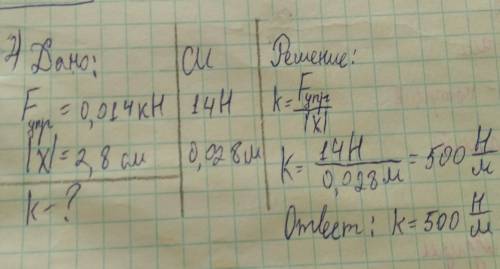 2) Дано:
Fупр = 0,014кН
|x| = 2,8 см
k - ?
СИ
14Н
0,028м
Решение:
k = Fупр/|x|
k = 14Н/0,028м = 500 Н/м
Ответ: k = 500 Н/м